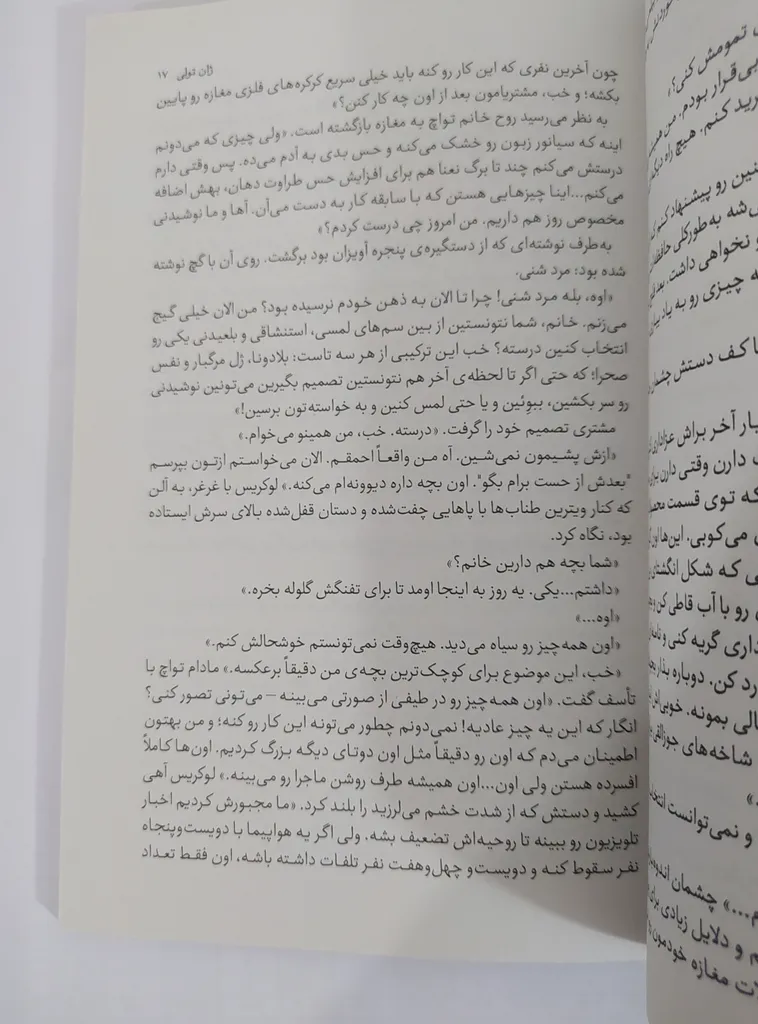 ژان تولی ۱۷
چون آخرین نفری که این کار رو کنه باید خیلی سریع کرکره‌های فلزی مغازه رو پایین
بکشه؛ و خب، مشتریامون بعد از اون چه کار کنن؟»
به نظر می‌رسید روح خانم تواچ به مغازه بازگشته است. «ولی چیزی که می‌دونم
اینه که سیانور زبون رو خشک می‌کنه و حس بدی به آدم می‌ده. پس وقتی دارم
درستش می‌کنم چند تا برگ نعنا هم برای افزایش حس طراوت دهان، بهش اضافه
می‌کنم...اینا چیزهایی هستن که با سابقه کار به دست می‌آن. آها و ما نوشیدنی
مخصوص روز هم داریم. من امروز چی درست کردم؟»
به‌طرف نوشته‌ای که از دستگیره‌ی پنجره آویزان بود برگشت. روی آن با گچ نوشته
شده بود: مرد شنی.
«اوه، بله مرد شنی! چرا تا الان به ذهن خودم نرسیده بود؟ من الان خیلی گیج
می‌زنم. خانم، شما نتونستین از بین سم‌های لمسی، استنشاقی و بلعیدنی یکی رو
انتخاب کنین درسته؟ خب این ترکیبی از هر سه تاست: بلادونا، ژل مرگبار و نفس
صحرا؛ که حتی اگر تا لحظه‌ی آخر هم نتونستین تصمیم بگیرین می‌تونین نوشیدنی
رو سر بکشین، ببوئین و یا حتی لمس کنین و به خواسته‌تون برسین!»
مشتری تصمیم خود را گرفت. «درسته. خب، من همینو می‌خوام.»
«ازش پشیمون نمی‌شین. آه من واقعاً احمقم. الان می‌خواستم ازتون بپرسم
"بعدش از حست برام بگو". اون بچه داره دیوونه‌ام می‌کنه.» لوکریس با غرغر، به آلن
که کنار ویترین طناب‌ها با پاهایی چفت‌شده و دستان قفل‌شده بالای سرش ایستاده
بود، نگاه کرد.
«شما بچه هم دارین خانم؟»
«داشتم...یکی. یه روز به اینجا اومد تا برای تفنگش گلوله بخره.»
«اوه...»
«اون همه‌چیز رو سیاه می‌دید. هیچ‌وقت نمی‌تونستم خوشحالش کنم.»
«خب، این موضوع برای کوچک‌ترین بچه‌ی من دقیقاً برعکسه.» مادام تواچ با
تأسف گفت. «اون همه‌چیز رو در طیفی از صورتی می‌بینه – می‌تونی تصور کنی؟
انگار که این یه چیز عادیه! نمی‌دونم چطور می‌تونه این کار رو کنه؛ و من بهتون
اطمینان می‌دم که اون رو دقیقاً مثل اون دوتای دیگه بزرگ کردیم. اون‌ها کاملاً
افسرده هستن ولی اون...اون همیشه طرف روشن ماجرا رو می‌بینه.» لوکریس آهی
کشید و دستش که از شدت خشم می‌لرزید را بلند کرد. «ما مجبورش کردیم اخبار
تلویزیون رو ببینه تا روحیه‌اش تضعیف بشه. ولی اگر یه هواپیما با دویست‌وپنجاه
نفر سقوط کنه و دویست‌و چهل‌وهفت نفر تلفات داشته باشه، اون فقط تعداد
تمومش کنی؟»
بی‌قرار بودم. من
رید کنم. هیچ راه
نین رو پیشنهاد کنم
می‌شه به‌طورکلی
و نخواهی داشت.
ه چیزی رو به یاد
ا کف دستش
بار آخر براش عزاداری
دارن وقتی دارن
که توی قسمت
می‌کوبی. این‌ها
ی که شکل انگشتای
رو با آب قاطی کن
داری گریه کنی و
رد کن. دوباره بذار
الی بمونه. خوبی
شاخه‌های
.»
و نمی‌توانست
م...» چشمان
م و دلایل زیادی برای
ات مغازه خودمون